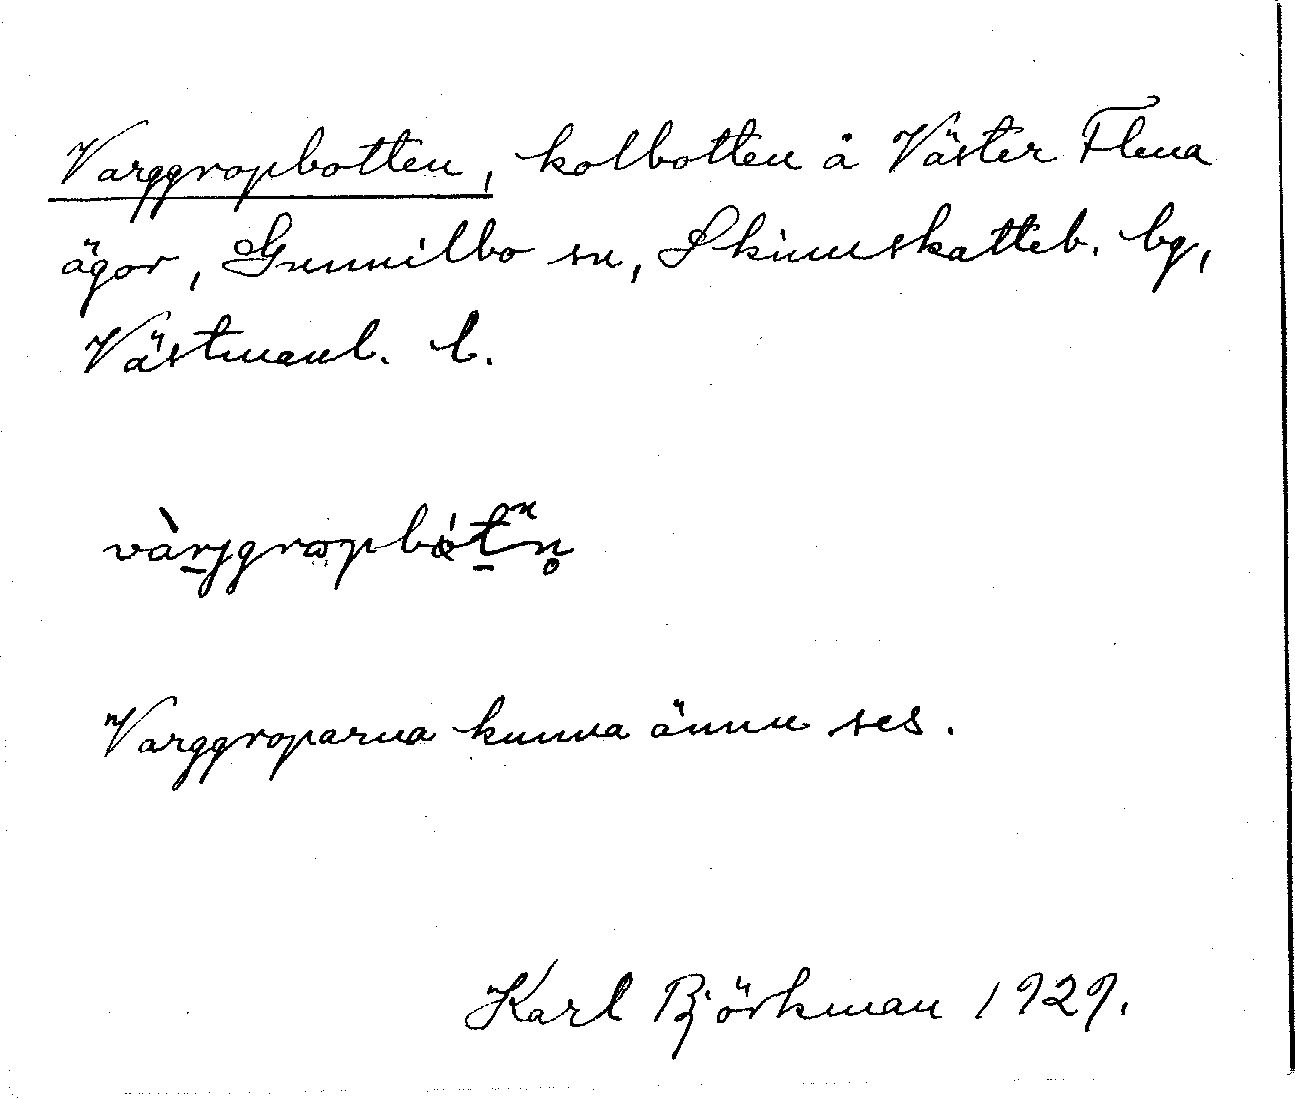 Varggropbotten, kolbotten å Väster Flena
ägor, Gunnilbo sn, Skinnskatteb. bg,
Västmanl. l.
vàrjgropbótn̥
Varggroparna kunna ännu ses.
Karl Björkman 1929.